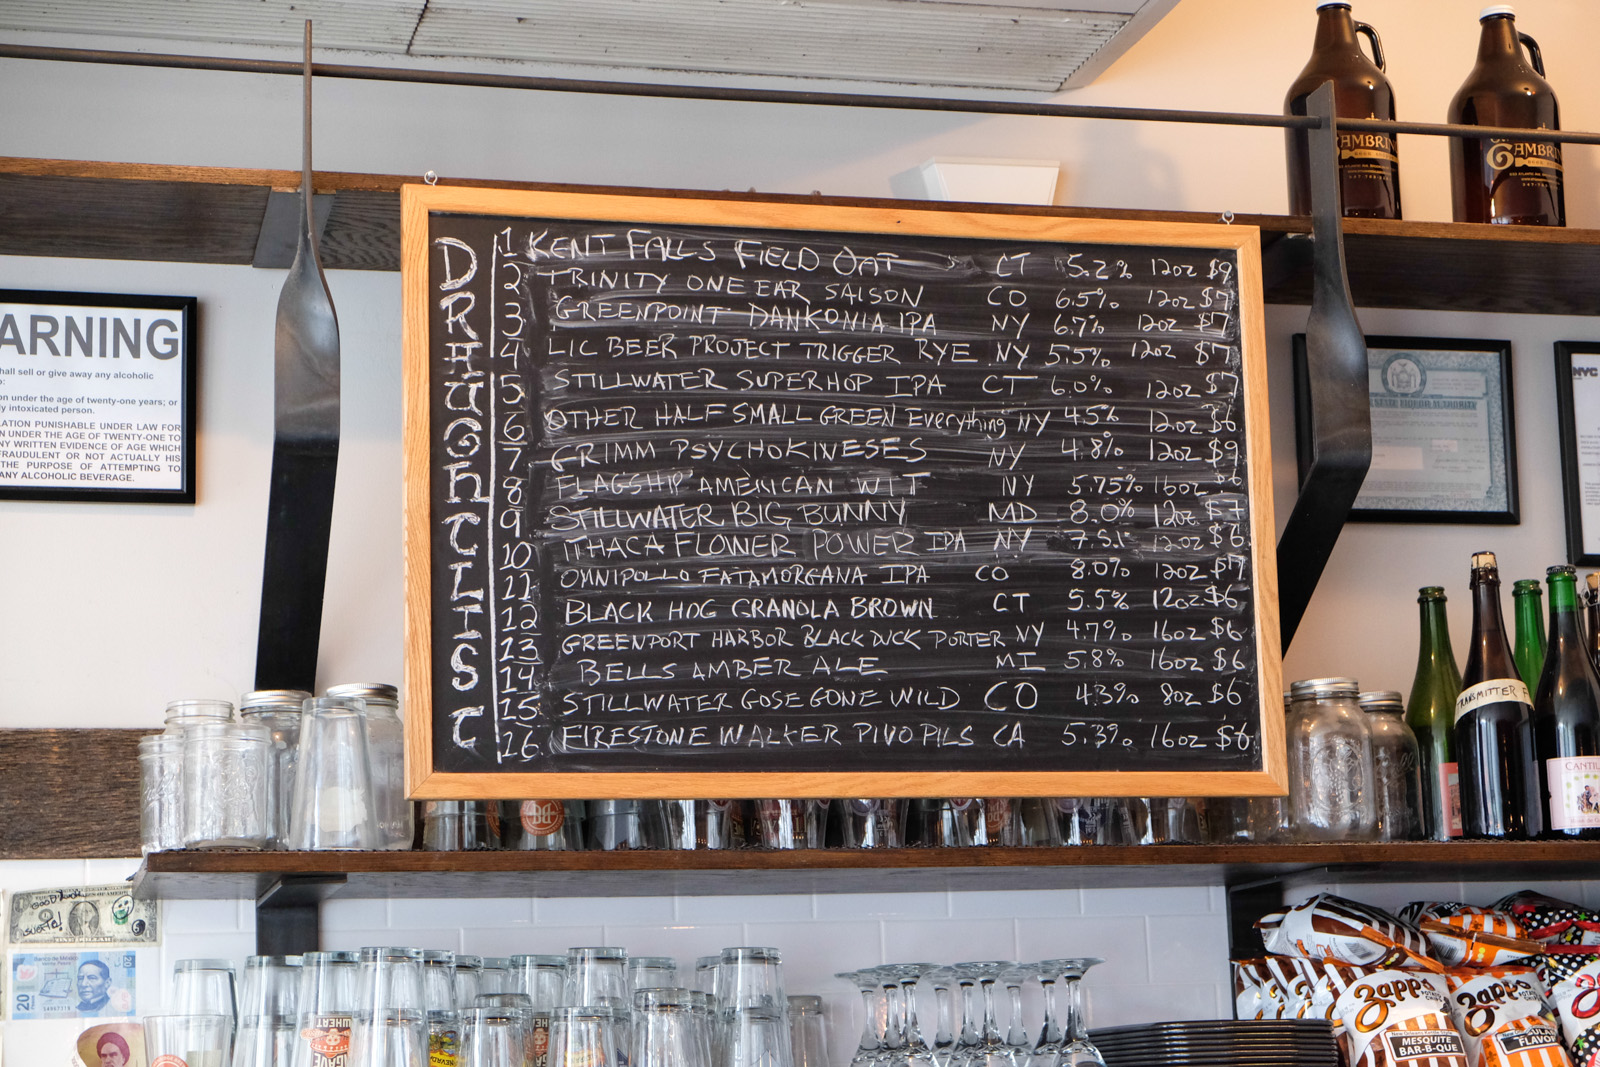 DRAUGHT LIST
1 KENT FALLS FIELD OAT CT 5.2% 12oz $9
2 TRINITY ONE EAR SAISON CO 6.5% 12oz $7
3 GREENPOINT DANKONIA IPA NY 6.7% 12oz $7
4 LIC BEER PROJECT TRIGGER RYE NY 5.5% 12oz $7
5 STILLWATER SUPERHOP IPA CT 6.0% 12oz $7
6 OTHER HALF SMALL GREEN Everything NY 4.5% 12oz $6
7 GRIMM PSYCHOKINESES NY 4.8% 12oz $9
8 FLAGSHIP AMERICAN WIT NY 5.75% 16oz $6
9 STILLWATER BIG BUNNY MD 8.0% 12oz $7
10 ITHACA FLOWER POWER IPA NY 7.5% 12oz $6
11 OMNIPOLLO FATAMORGANA IPA CO 8.0% 12oz $7
12 BLACK HOG GRANOLA BROWN CT 5.5% 12oz $6
13 GREENPORT HARBOR BLACK DUCK PORTER NY 4.7% 16oz $6
14 BELLS AMBER ALE MI 5.8% 16oz $6
15 STILLWATER GOSE GONE WILD CO 4.3% 8oz $6
16 FIRESTONE WALKER PIVO PILS CA 5.3% 16oz $6
ARNING
hall sell or give away any alcoholic
o:
on under the age of twenty-one years; or
ly intoxicated person.
LATION PUNISHABLE UNDER LAW FOR
N UNDER THE AGE OF TWENTY-ONE TO
NY WRITTEN EVIDENCE OF AGE WHICH
FRAUDULENT OR NOT ACTUALLY HIS
THE PURPOSE OF ATTEMPTING TO
ANY ALCOHOLIC BEVERAGE.
AMBRIN
GAMBRIN
NYC
TRANSMITTER
CANTIL
GOOD LUCK
SUERTE!
ONE DOLLAR
Banco de México
20
20
WHEAT
Zapp's
MESQUITE
BAR-B-QUE
Zapp's
FLAVOR